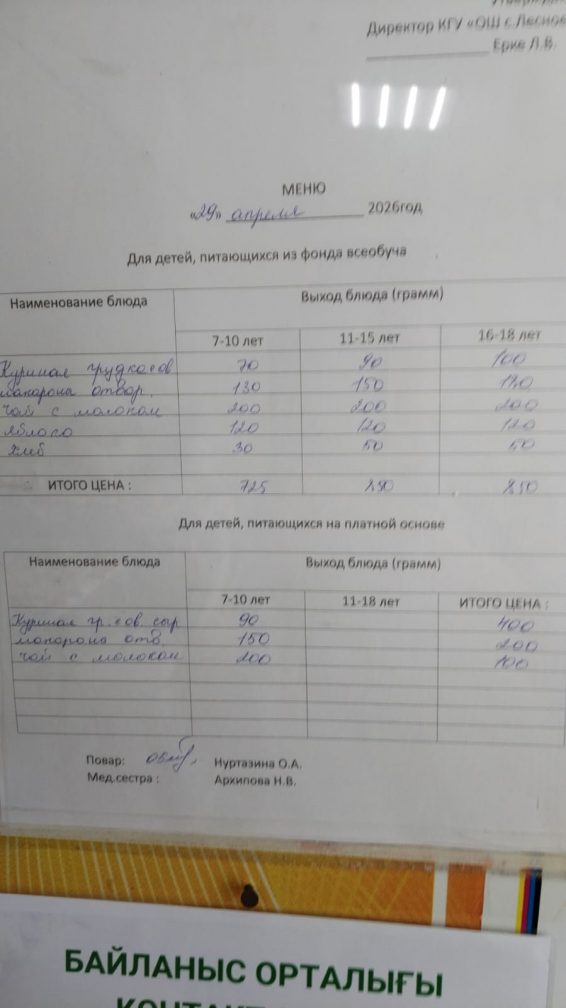 Директор КГУ «ОШ с.Лесное
Ерке Л.В.
МЕНЮ
«29» апреля 2026год
Для детей, питающихся из фонда всеобуча
Наименование блюда Выход блюда (грамм)
7-10 лет 11-15 лет 16-18 лет
Куриная грудка с ов 70 90 100
макароны отвар. 130 150 180
чай с молоком 200 200 200
яблоко 120 120 120
хлеб 30 50 50
ИТОГО ЦЕНА : 725 850 850
Для детей, питающихся на платной основе
Наименование блюда Выход блюда (грамм)
7-10 лет 11-18 лет ИТОГО ЦЕНА :
Куриная гр. с ов. сыр 90 400
макароны отв. 150 200
чай с молоком 200 100
Повар: Нуртазина О.А.
Мед.сестра : Архипова Н.В.
БАЙЛАНЫС ОРТАЛЫҒЫ